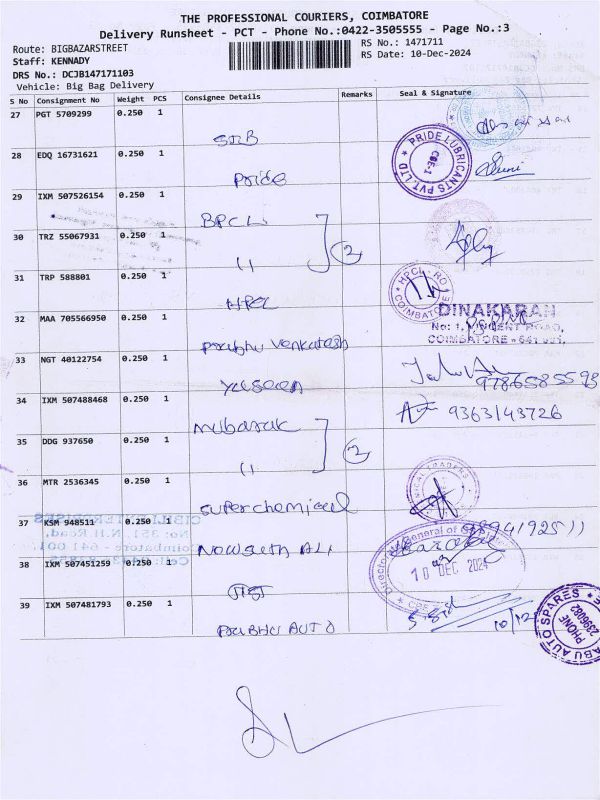 THE PROFESSIONAL COURIERS, COIMBATORE
Delivery Runsheet - PCT - Phone No.:0422-3505555 - Page No.:3
Route: BIGBAZARSTREET
RS No.: 1471711
Staff: KENNADY
RS Date: 10-Dec-2024
DRS No.: DCJB147171103
Vehicle: Big Bag Delivery
S No Consignment No Weight PCS Consignee Details Remarks Seal & Signature
27 PGT 5709299 0.250 1
SIB
28 EDQ 16731621 0.250 1
Pride
PRIDE LUBRICANTS PVT LTD
CBE-1
29 IXM 507526154 0.250 1
BPCL
30 TRZ 55067931 0.250 1
(1
2
31 TRP 588801 0.250 1
HPCL
HPCL - RO
COIMBATORE
32 MAA 705566950 0.250 1
Prabhu Venkatesh
DINAKARAN
No: 1, VINCENT ROAD,
COIMBATORE - 641 001.
33 NGT 40122754 0.250 1
Yaseen
9786585593
34 IXM 507488468 0.250 1
Mubarak
9363143726
35 DDG 937650 0.250 1
(1
2
36 MTR 2536345 0.250 1
Super chemical
37 KSM 948511 0.250 1
Nowsuth Ali
9894192511
38 IXM 507451259 0.250 1
GST
10 DEC 2024
39 IXM 507481793 0.250 1
Prabhu Auto
10/12
BABU AUTO SPARES
PHONE
2396092
No: 351, N.H. Road,
Coimbatore - 641 001